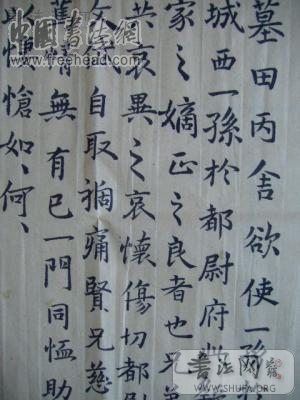 墓田丙舍欲使一孫
城西一孫於都尉府
家之嫡正之良者也兄弟
共哀異之哀懷傷切都尉
自取禍痛賢兄慈
情無有已一門同恤助
愴如、何、
中国書法網
www.freehead.com
书法网
WWW.SHUFA.ORG